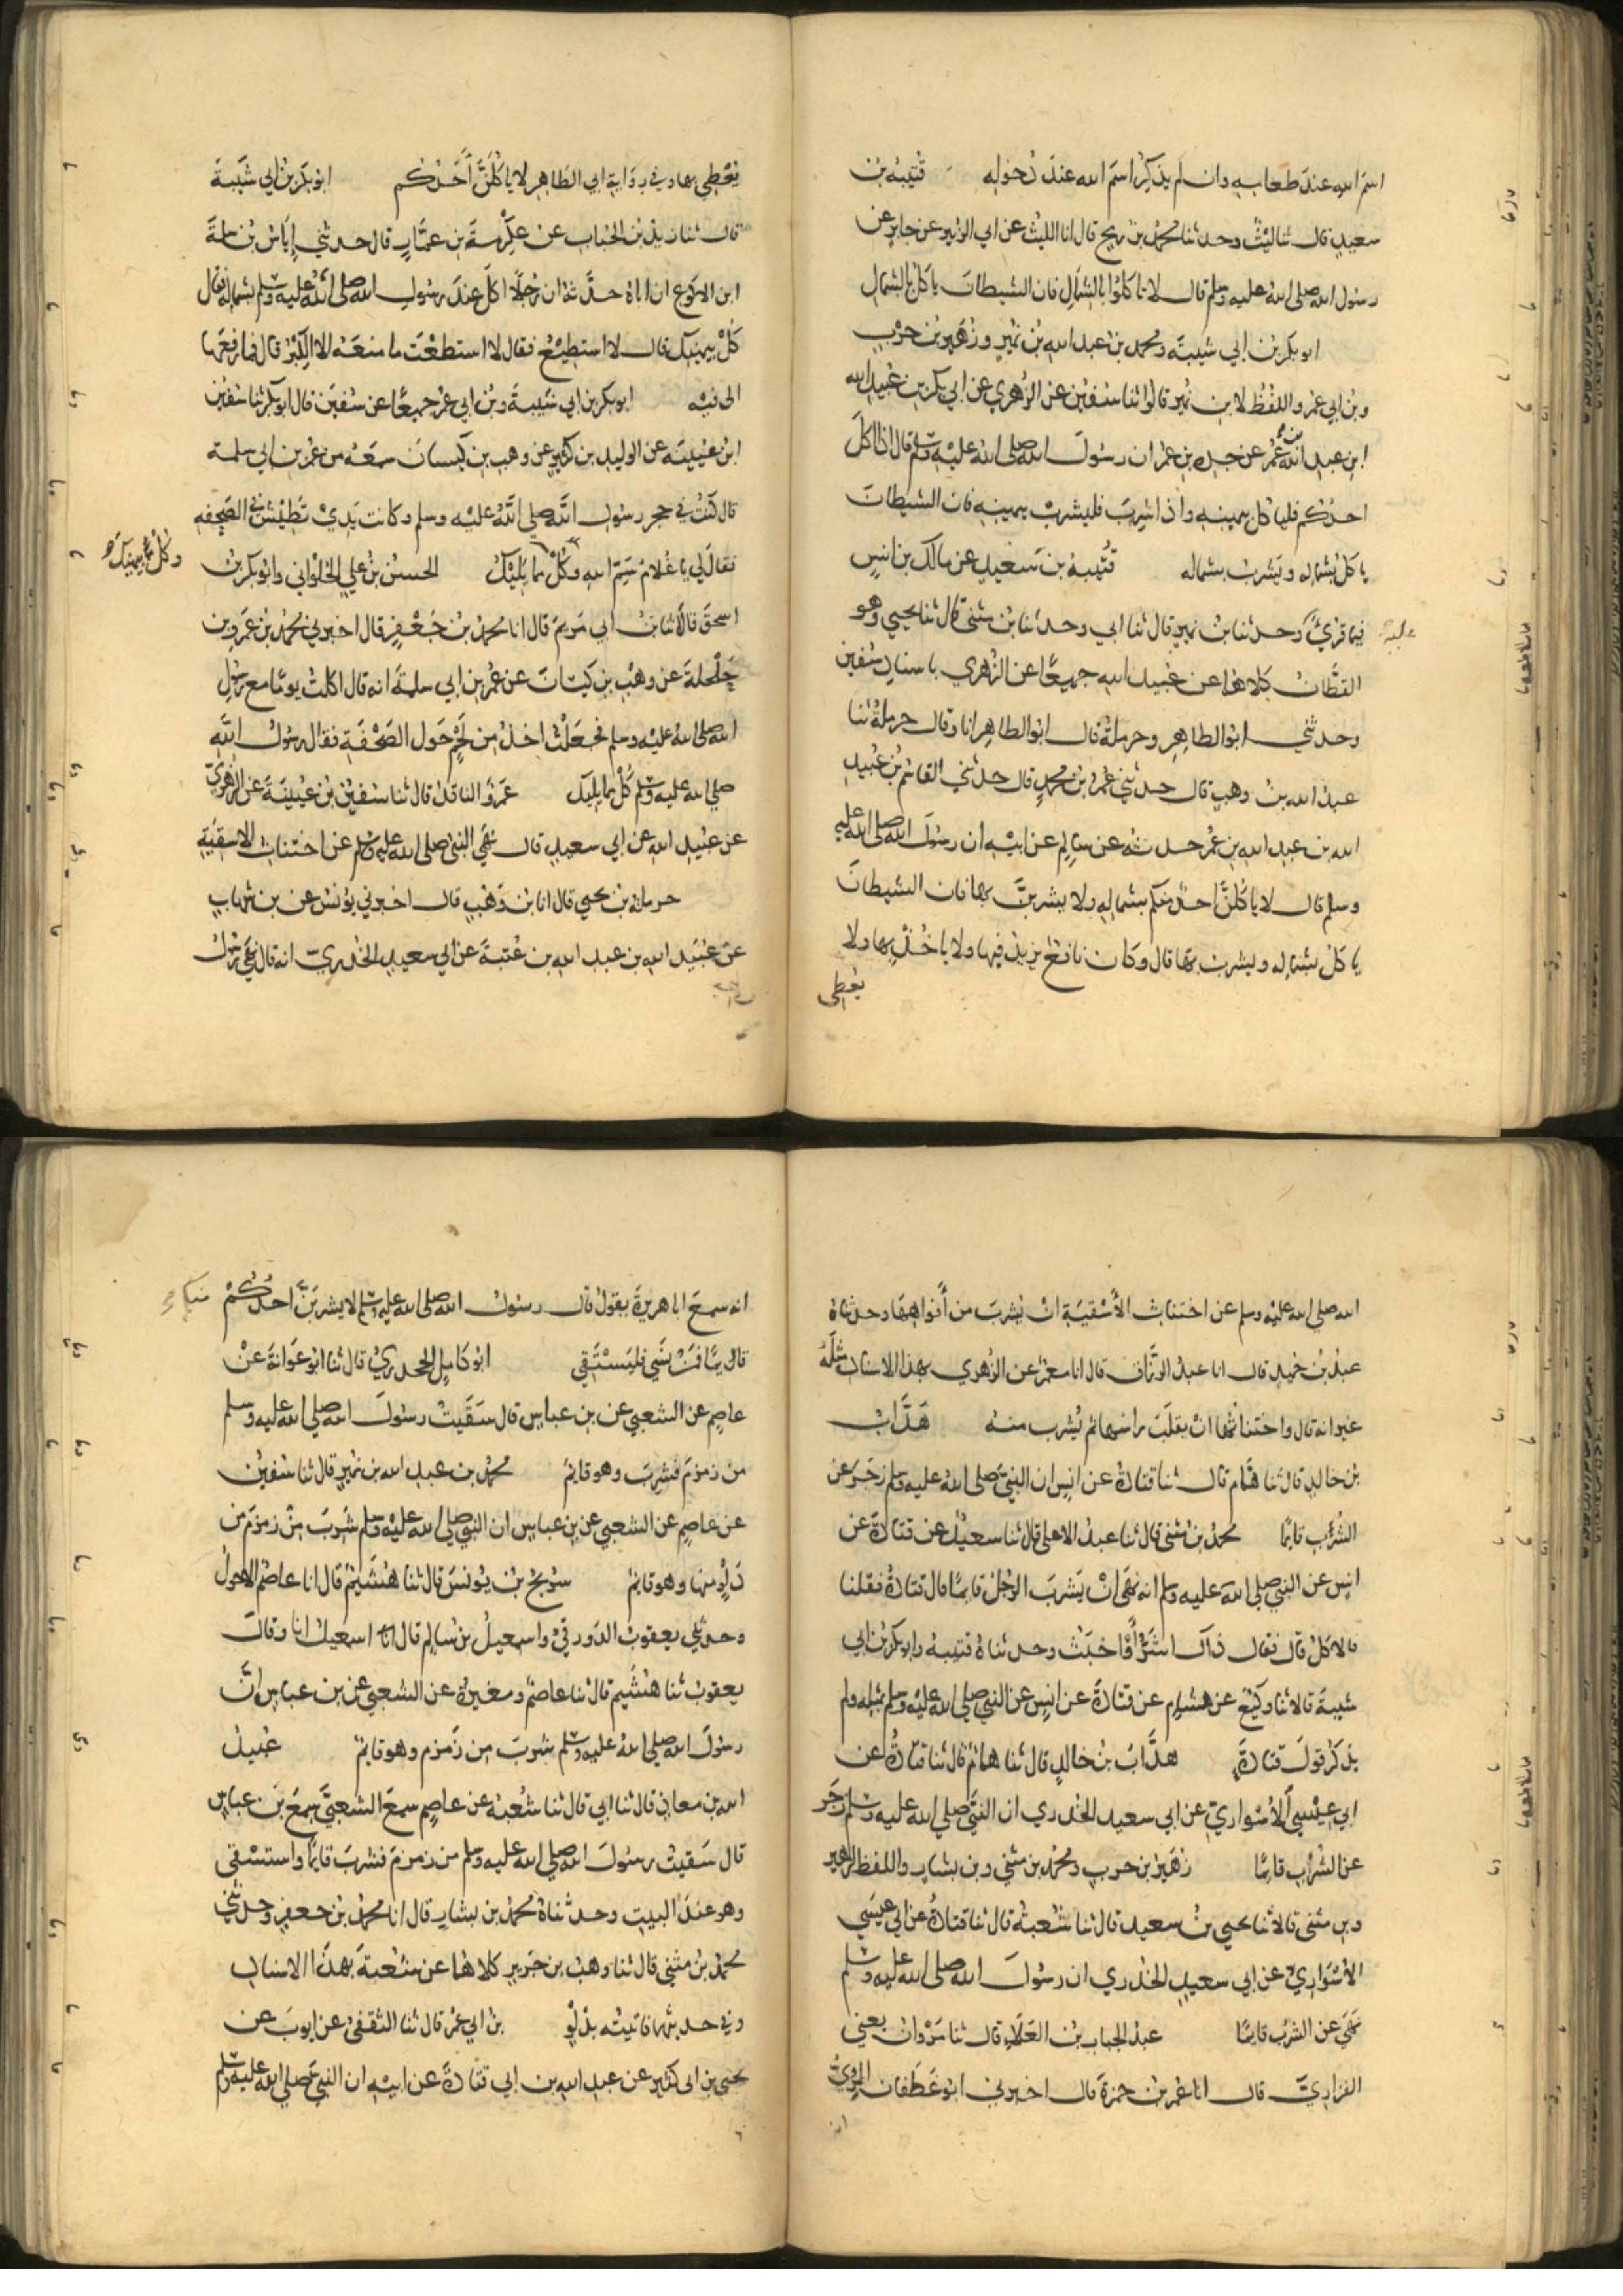 اسم الله عند طعامه وان لم يذكر اسم الله عند دخوله قتيبة بن
سعيد قال ثنا ليث وحدثنا محمد بن رمح قال انا الليث عن ابي الزبير عن جابر عن
رسول الله صلى الله عليه وسلم قال لا تاكلوا بالشمال فان الشيطان ياكل بالشمال
ابو بكر بن ابي شيبة ومحمد بن عبد الله بن نمير وزهير بن حرب
وبن ابي عمر واللفظ لابن نمير قالوا ثنا سفين عن الزهري عن ابي بكر بن عبيد الله
ابن عبد الله بن عمر عن جده بن عمر ان رسول الله صلى الله عليه وسلم قال اذا اكل
احدكم فلياكل بيمينه واذا شرب فليشرب بيمينه فان الشيطان
ياكل بشماله ويشرب بشماله قتيبة بن سعيد عن مالك بن انس
فيما قرئ عليه وحدثنا بن نمير قال ثنا ابي وحدثنا بن مثنى قال ثنا يحيى وهو
القطان كلاهما عن عبيد الله جميعا عن الزهري باسناد سفين
وحدثني ابو الطاهر وحرملة قال ابو الطاهر انا وقال حرملة ثنا
عبد الله بن وهب قال حدثني عمر بن محمد قال حدثني القاسم بن عبيد
الله بن عبد الله بن عمر حدثه عن سالم عن ابيه ان رسول الله صلى الله عليه
وسلم قال لا ياكلن احد منكم بشماله ولا يشربن بها فان الشيطان
ياكل بشماله ويشرب بها قال وكان نافع يزيد فيها ولا ياخذ بها ولا
يعطى
يعطي بها وفي رواية ابي الطاهر لا ياكلن احدكم ابو بكر بن ابي شيبة
قال ثنا زيد بن الحباب عن عكرمة بن عمار قال حدثني اياس بن سلمة
ابن الاكوع ان اباه حدثه ان رجلا اكل عند رسول الله صلى الله عليه وسلم بشماله فقال
كل بيمينك قال لا استطيع فقال لا استطعت ما منعه الا الكبر قال فما رفعها
الى فيه ابو بكر بن ابي شيبة وبن ابي عمر جميعا عن سفين قال ابو بكر ثنا سفين
ابن عيينة عن الوليد بن كثير عن وهب بن كيسان سمعه من عمر بن ابي سلمة
قال كنت في حجر رسول الله صلى الله عليه وسلم وكانت يدي تطيش في الصحفة
فقال لي يا غلام سم الله وكل مما يليك الحسن بن علي الحلواني وابو بكر بن
وكل بيمينك
اسحق قالا ثنا بن ابي مريم قال انا محمد بن جعفر قال اخبرني محمد بن عمرو بن
حلحلة عن وهب بن كيسان عن عمر بن ابي سلمة انه قال اكلت يوما مع رسول
الله صلى الله عليه وسلم فجعلت اخذ من لحم حول الصحفة فقال رسول الله
صلى الله عليه وسلم كل مما يليك عمرو الناقد قال ثنا سفين بن عيينة عن الزهري
عن عبيد الله عن ابي سعيد قال نهى النبي صلى الله عليه وسلم عن اختناث الاسقية
حرملة بن يحيى قال انا بن وهب قال اخبرني يونس عن بن شهاب
عن عبيد الله بن عبد الله بن عتبة عن ابي سعيد الخدري انه قال نهى رسول
الله صلى الله عليه وسلم عن اختناث الأسقية ان يشرب من أفواهها وحدثناه
عبد بن حميد قال انا عبد الرزاق قال انا معمر عن الزهري بهذا الاسناد مثله
غير انه قال واختناثها ان يقلب راسها ثم يشرب منه هداب
بن خالد قال ثنا همام قال ثنا قتادة عن انس ان النبي صلى الله عليه وسلم زجر عن
الشرب قايما محمد بن مثنى قال ثنا عبد الاعلى قال ثنا سعيد عن قتادة عن
انس عن النبي صلى الله عليه وسلم انه نهى ان يشرب الرجل قايما قال قتادة فقلنا
فالاكل قال فقال ذاك اشر أو اخبث وحدثناه قتيبة وابو بكر بن ابي
شيبة قالا ثنا وكيع عن هشام عن قتادة عن انس عن النبي صلى الله عليه وسلم بمثله ولم
يذكر قول قتادة هداب بن خالد قال ثنا همام قال ثنا قتادة عن
ابي عيسى الأسواري عن ابي سعيد الخدري ان النبي صلى الله عليه وسلم زجر
عن الشرب قايما زهير بن حرب ومحمد بن مثنى وبن بشار واللفظ لزهير
وبن مثنى قالا ثنا يحيى بن سعيد قال ثنا شعبة قال ثنا قتادة عن ابي عيسى
الاسواري عن ابي سعيد الخدري ان رسول الله صلى الله عليه وسلم
نهى عن الشرب قايما عبد الجبار بن العلاء قال ثنا مروان يعني
الفزاري قال انا عمر بن حمزة قال اخبرني ابو غطفان المري
انه سمع ابا هريرة يقول قال رسول الله صلى الله عليه وسلم لا يشربن احدكم
قايما فمن نسي فليستقي ابو كامل الجحدري قال ثنا ابو عوانة عن
عاصم عن الشعبي عن بن عباس قال سقيت رسول الله صلى الله عليه وسلم
من زمزم فشرب وهو قايم محمد بن عبد الله بن نمير قال ثنا سفين
عن عاصم عن الشعبي عن بن عباس ان النبي صلى الله عليه وسلم شرب من زمزم من
دلو منها وهو قايم سريج بن يونس قال ثنا هشيم قال انا عاصم الاحول
وحدثني يعقوب الدورقي واسمعيل بن سالم قال اسمعيل انا وقال
يعقوب ثنا هشيم قال ثنا عاصم ومغيرة عن الشعبي عن بن عباس ان
رسول الله صلى الله عليه وسلم شرب من زمزم وهو قايم عبيد
الله بن معاذ قال ثنا ابي قال ثنا شعبة عن عاصم سمع الشعبي سمع بن عباس
قال سقيت رسول الله صلى الله عليه وسلم من زمزم فشرب قايما واستسقى
وهو عند البيت وحدثناه محمد بن بشار قال انا محمد بن جعفر وحدثني
محمد بن مثنى قال ثنا وهب بن جرير كلاهما عن شعبة بهذا الاسناد
وفي حديثهما فاتيته بدلو بن ابي عمر قال ثنا الثقفي عن ايوب عن
يحيى بن ابي كثير عن عبد الله بن ابي قتادة عن ابيه ان النبي صلى الله عليه وسلم